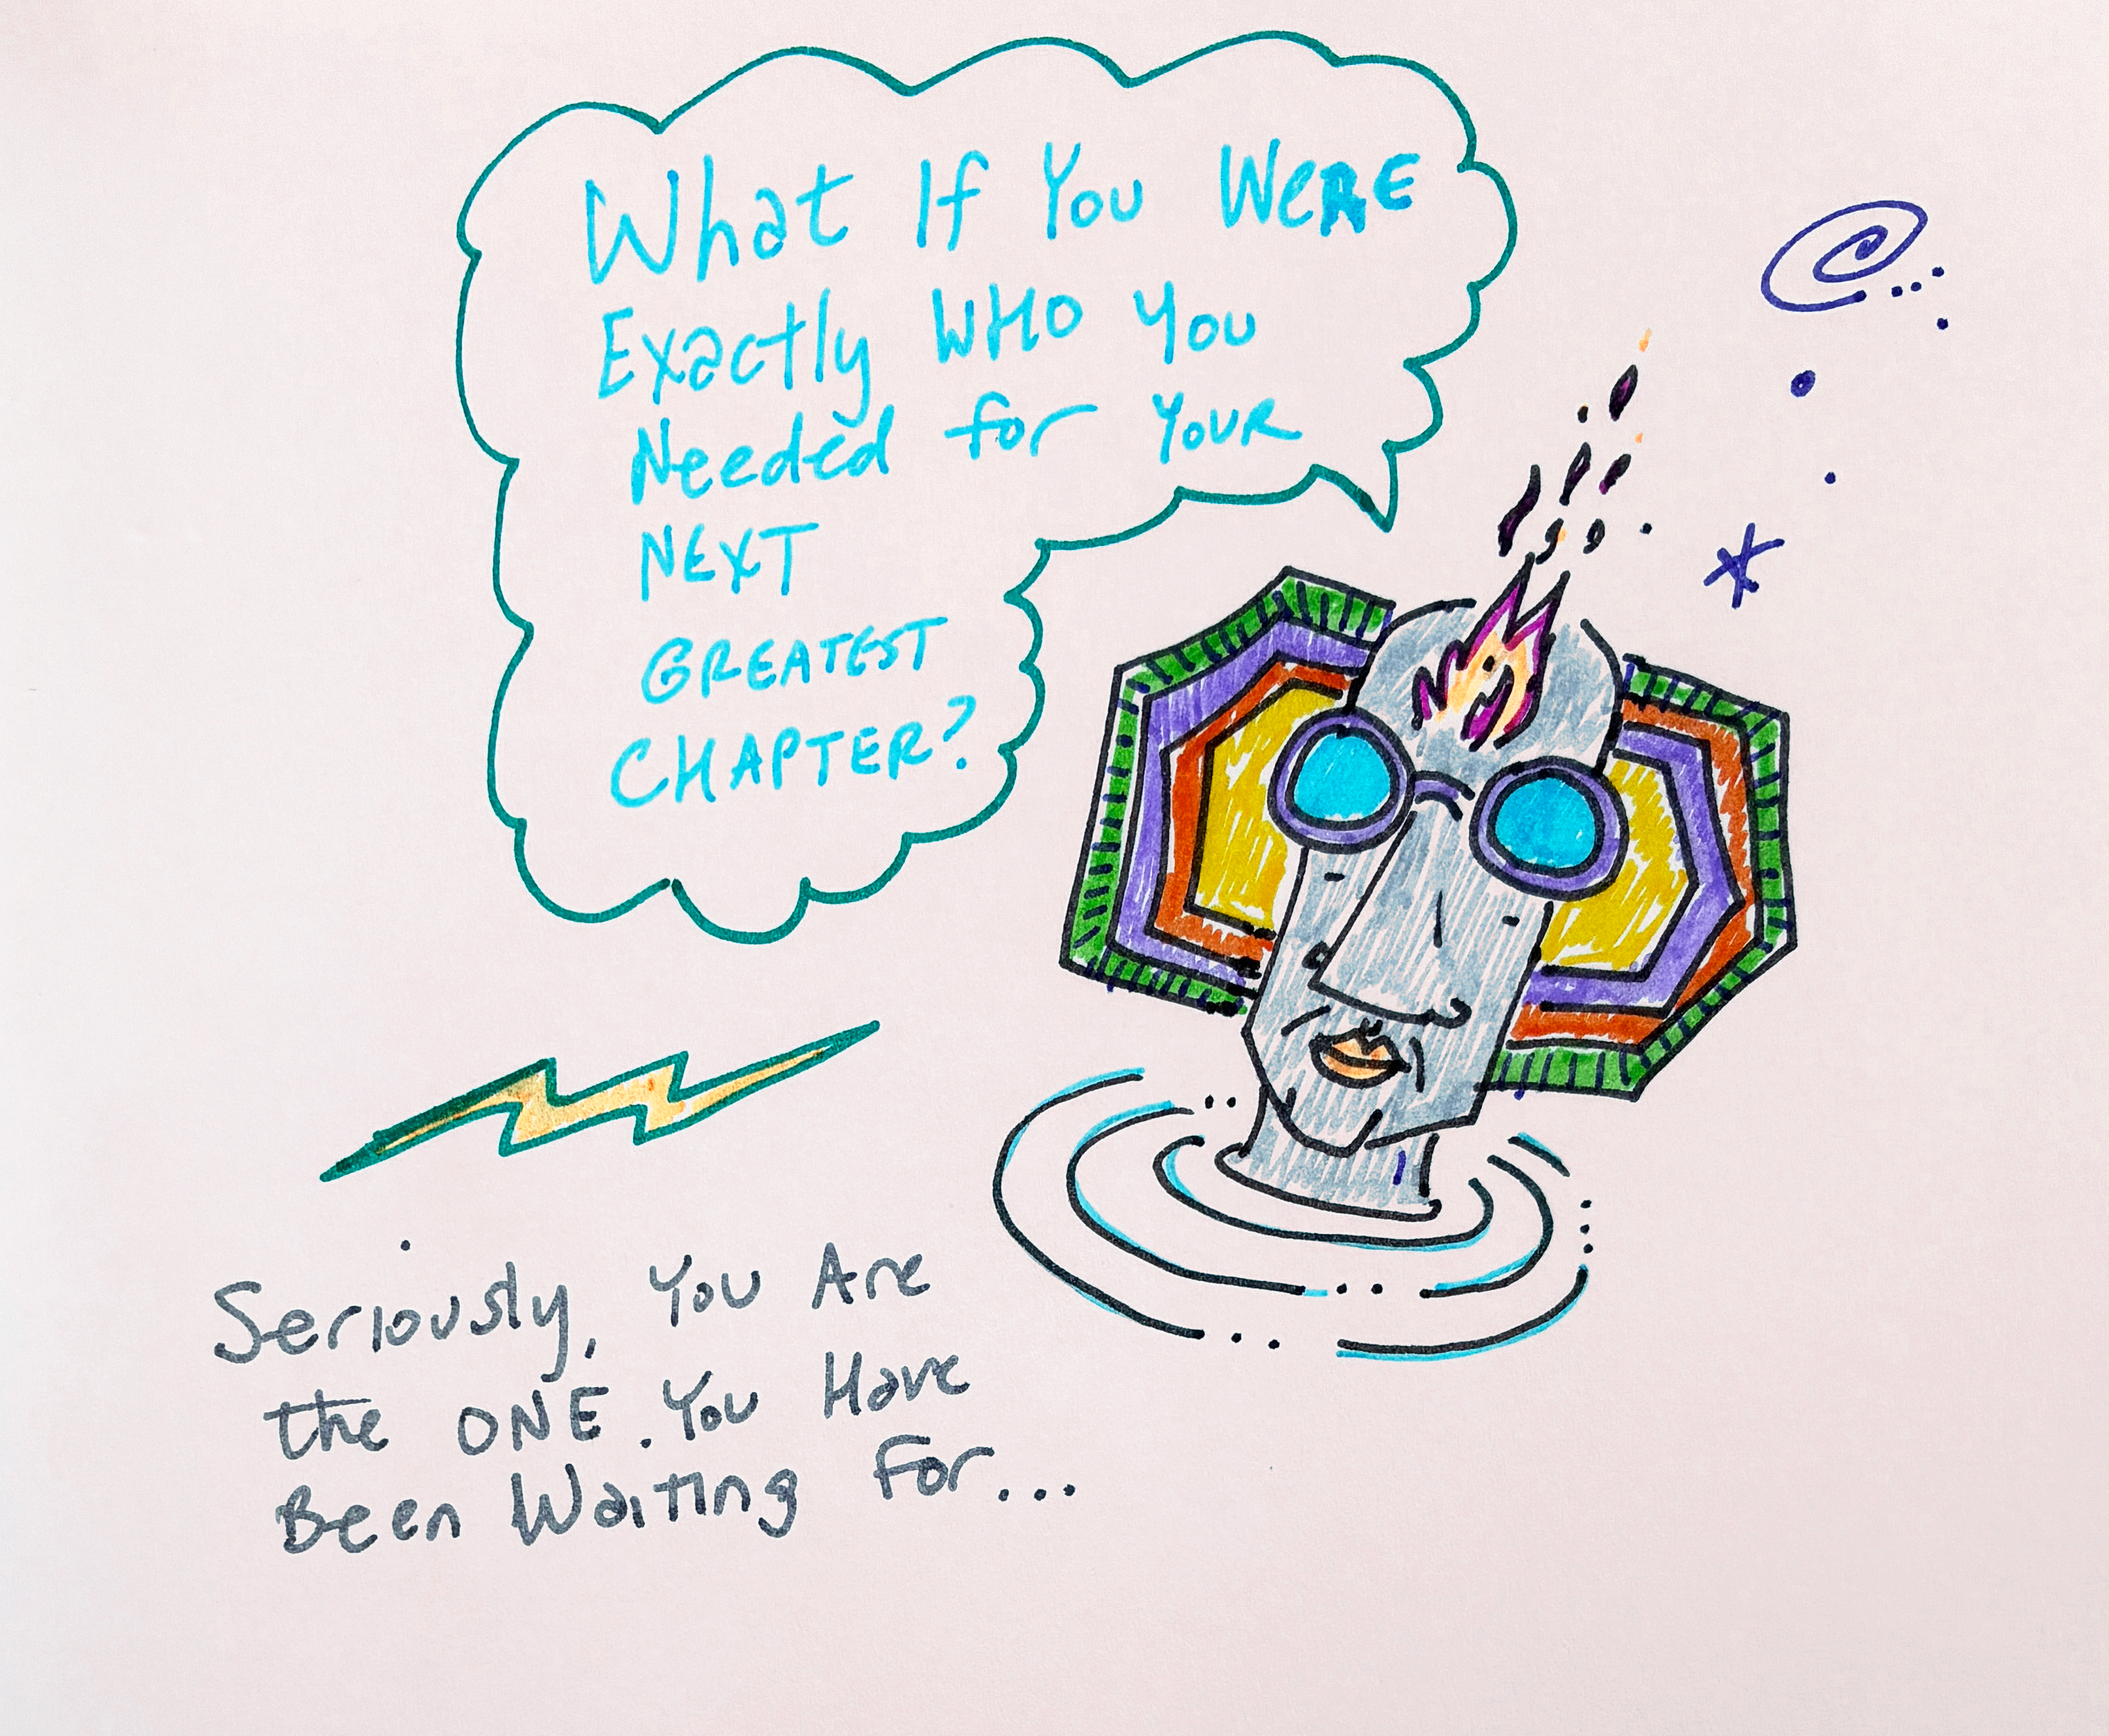 What If You Were
Exactly WHO You
Needed for Your
NEXT
GREATEST
CHAPTER?
Seriously, You Are
the ONE. You Have
Been Waiting For...